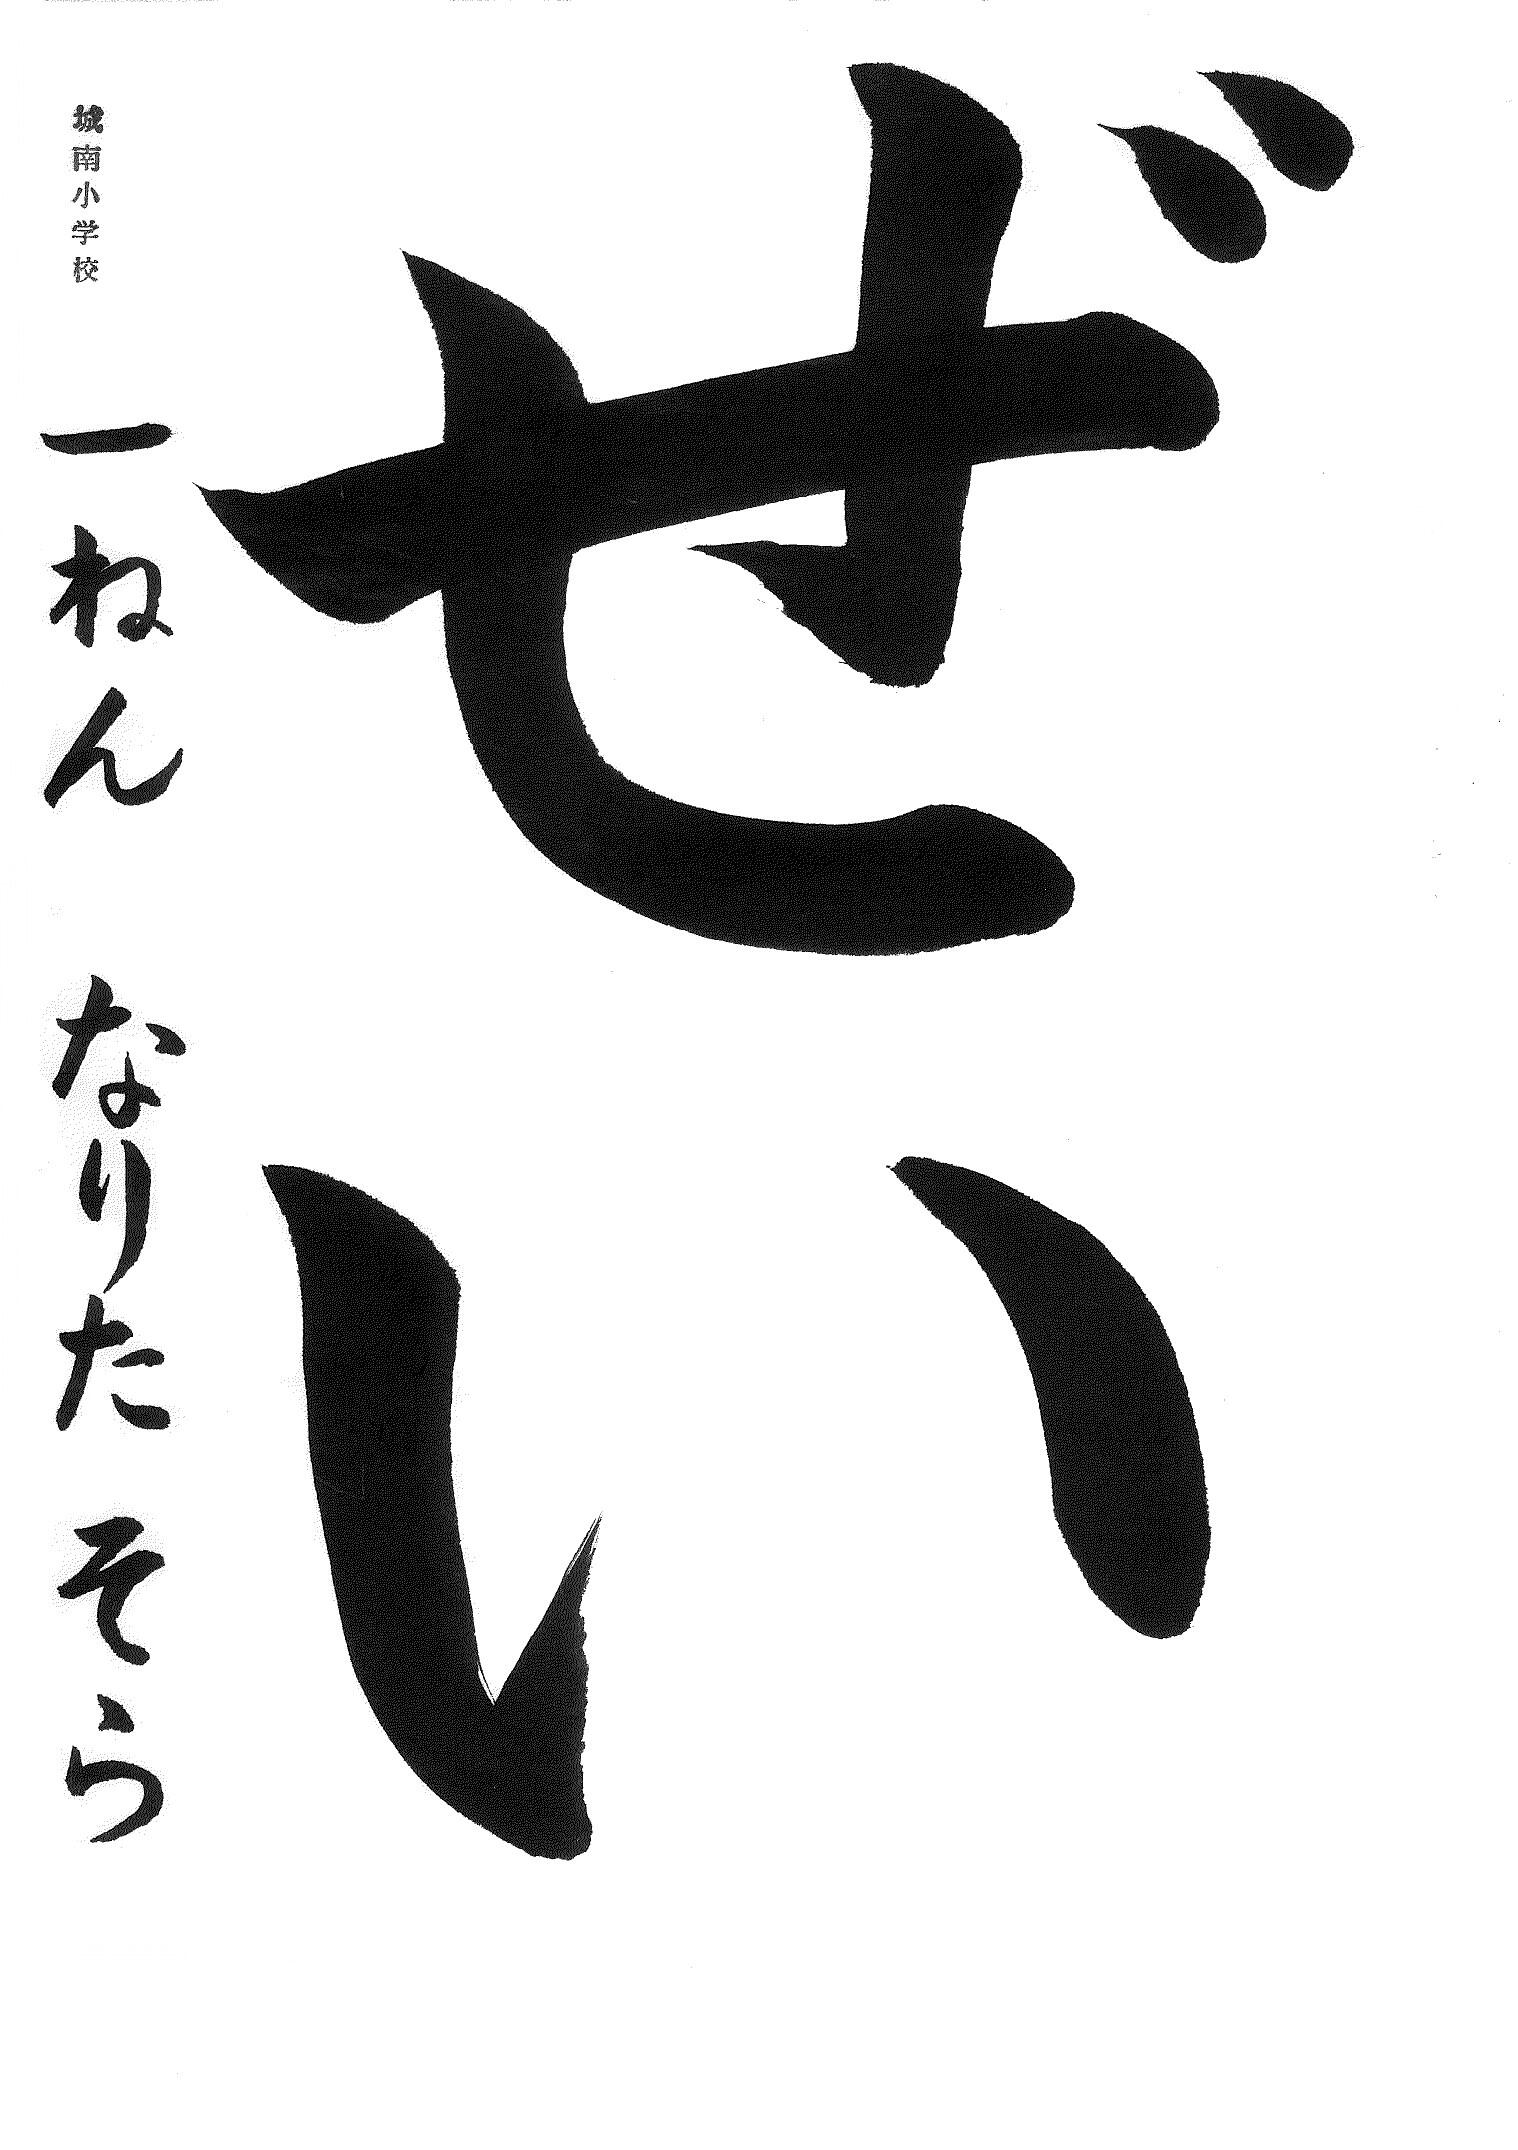 ぜい
城南小学校
一ねん なりた そら